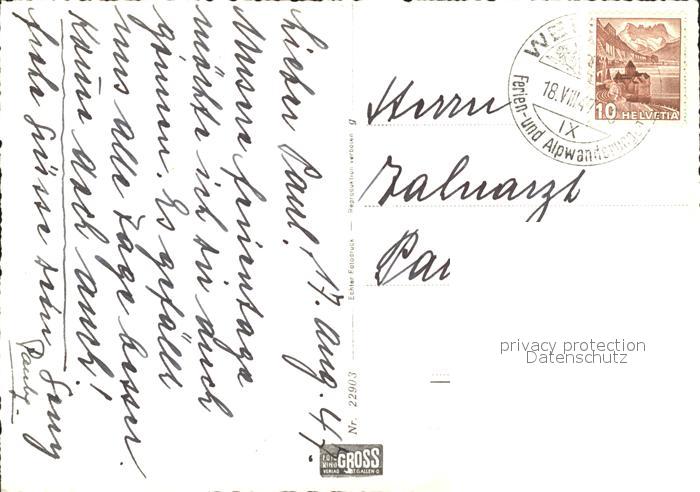 Lieber Paul! 17. Aug. 47.
Unsere Ferientage
möchte ich dir auch
gönnen. Es gefällt
uns alle Tage besser.
Komm doch auch!
frohe Grüsse dein
Echter Fotodruck — Reproduktion verboten
Nr. 22903
FOTO
KINO
VERLAG
GROSS
ST.GALLEN
Herrn
Zahnarzt
Pau
18.VIII.47
IX
Ferien- und Alpwanderungen
10 HELVETIA
privacy protection
Datenschutz